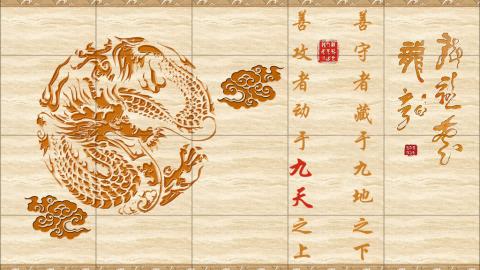 善守者藏于九地之下
善攻者动于九天之上